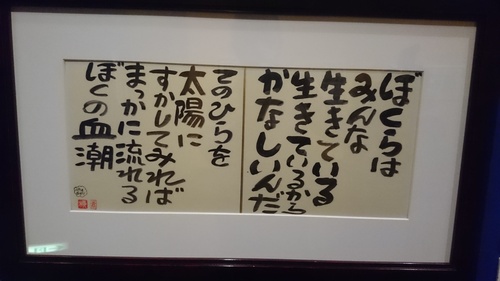 ぼくらは
みんな
生きている
生きているから
かなしいんだ
てのひらを
太陽に
すかしてみれば
まっかに流れる
ぼくの血潮